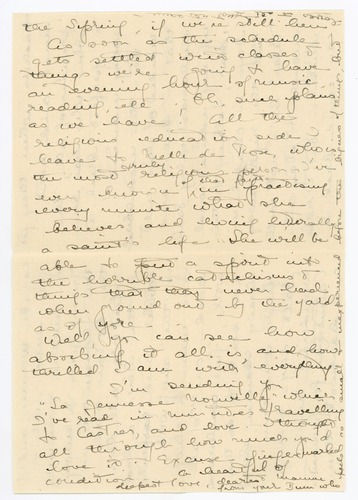 the Spring, if we're still here.
As soon as the schedule
gets settled with classes &
things we're going to have
an evening hour of music
reading, etc! Oh, such plans
as we have! All the
religious education side I
leave to Nelle de Rose, who is
the most truly religious person I've
ever known, in practising
every minute what she
believes and living literally
a saint's life. She will be
able to put a spirit into
the horrible catechisms &
things that they never had
when ground out by the yard
as of yore.
Well you can see how
absorbing it all is, and how
thrilled I am with everything
I'm sending you
"La Jeunesse Nouvelle" which
I've read in minutes travelling
to Castres, and love. I thought
all through how much you'd
love it. Excuse finger marked
condition. A heartful of
deepest love, dearest
from your